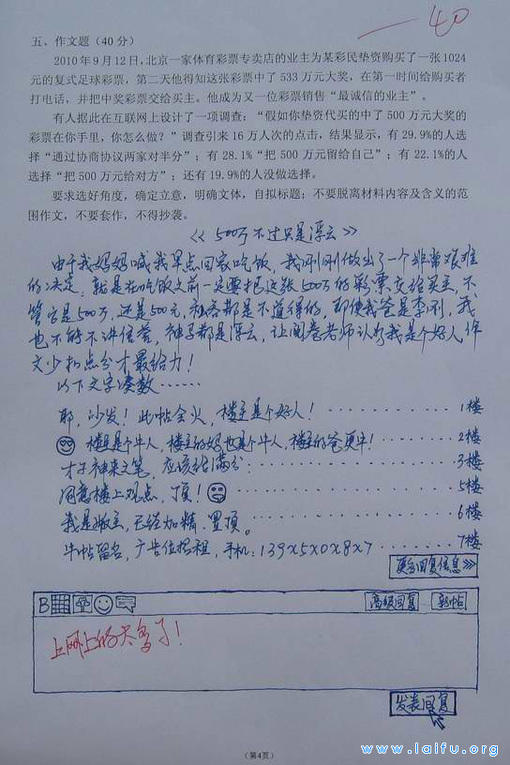 -40
五、作文题（40分）
2010年9月12日，北京一家体育彩票专卖店的业主为某彩民垫资购买了一张1024
元的复式足球彩票，第二天他得知这张彩票中了533万元大奖，在第一时间给购买者
打电话，并把中奖彩票交给买主。他成为又一位彩票销售“最诚信的业主”。
有人据此在互联网上设计了一项调查：“假如你垫资代买的中了500万元大奖的
彩票在你手里，你怎么做？”调查引来16万人次的点击，结果显示，有29.9%的人选
择“通过协商协议两家对半分”；有28.1%“把500万元留给自己”；有22.1%的人
选择“把500万元给对方”；还有19.9%的人没做选择。
要求选好角度，确定立意，明确文体，自拟标题；不要脱离材料内容及含义的范
围作文，不要套作，不得抄袭。
《500万不过只是浮云》
由于我妈妈喊我早点回家吃饭，我刚刚做出了一个非常艰难
的决定，就是在吃饭之前一定要把这张500万的彩票交给买主，不
管它是500万，还是500元，私吞都是不道得的，即使我爸是李刚，我
也不能不讲信誉，神马都是浮云，让阅卷老师认为我是个好人，作
文少扣点分才最给力！
以下文字凑数……
耶，沙发！此帖会火，楼主是个好人！……1楼
楼主是个牛人，楼主的妈也是个牛人，楼主的爸更牛！……2楼
才子神来之笔，应该给满分……3楼
同意楼上观点，顶！……5楼
我是版主，已经加精、置顶。……6楼
牛帖留名，广告位招租，手机：139x5x0x8x7……7楼
更多回复信息>>>
B
高级回复 新帖
上网上的太多了！
发表回复
（第4页）
www.laifu.org